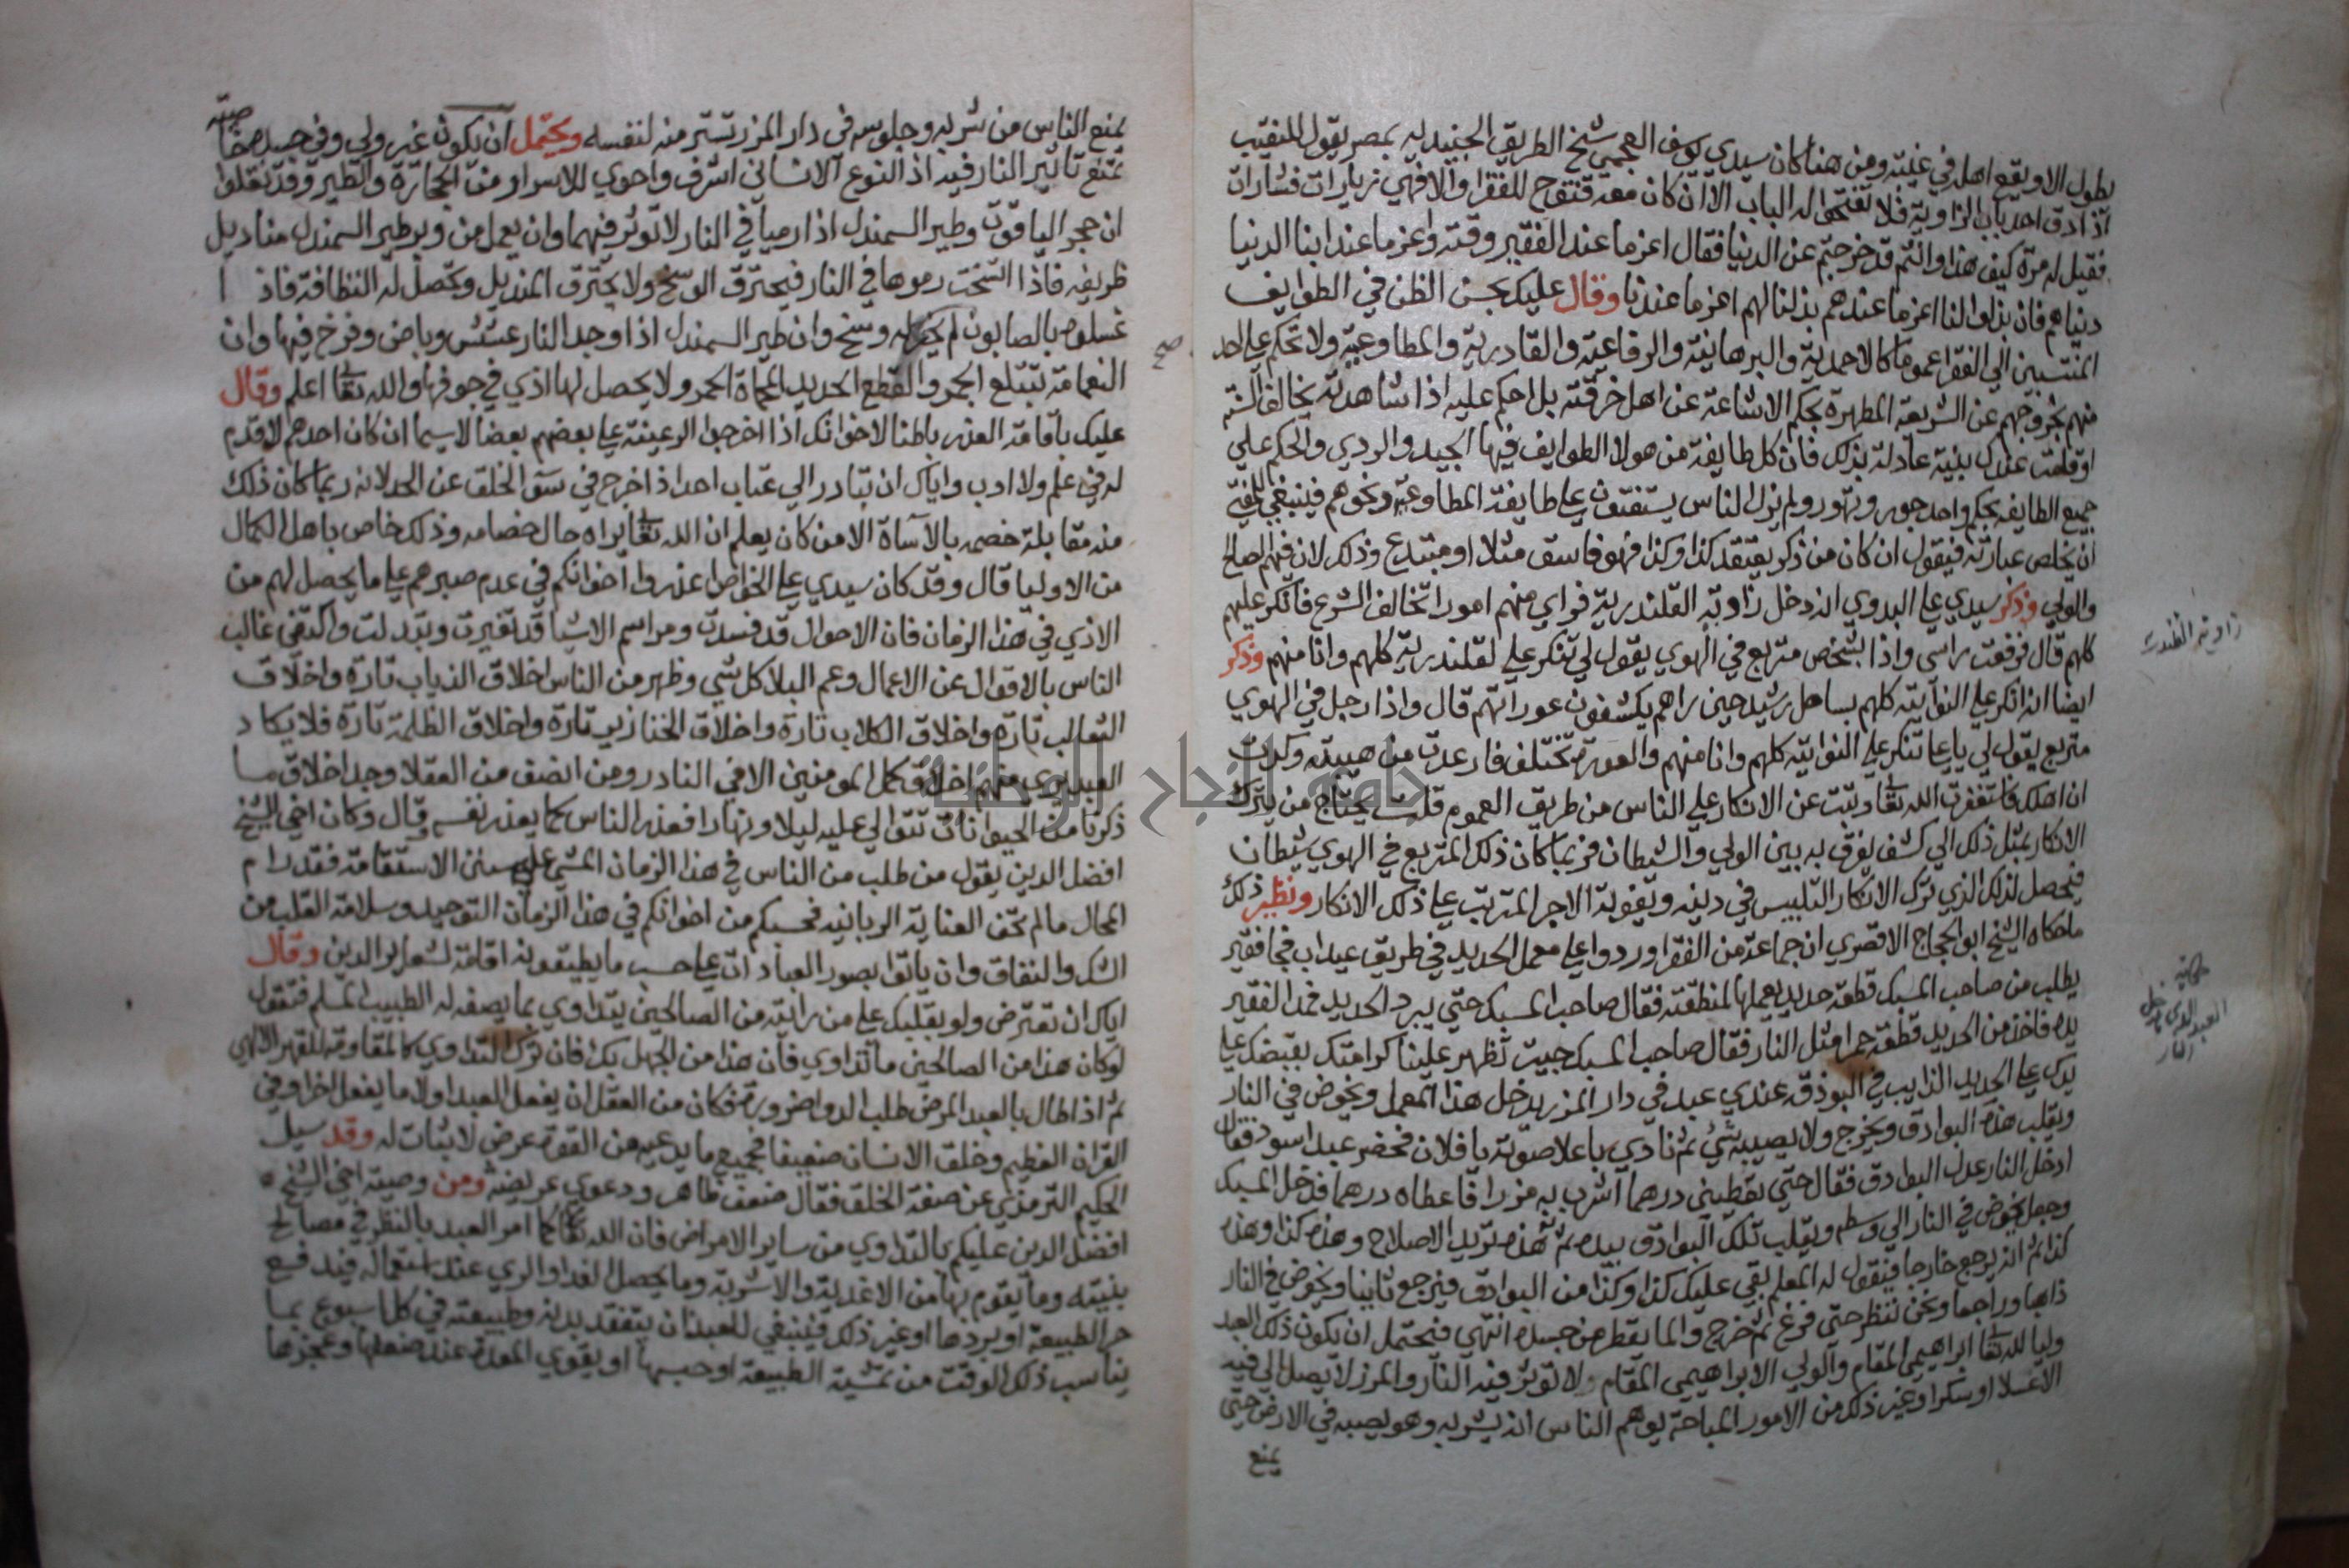 يطول الا ويقع اهله في غيبته ومن هنا كان سيدي يوسف العجمي شيخ الطريق الجنيدية بمصر يقول للنقيب
اذا دق احد باب الزاوية فلا تفتحوا له الباب الا ان كان معه فتوح للفقرا والا فهي زيارات فشارات
فقيل له مرة كيف هذا وانتم قد خرجتم عن الدنيا فقال اعز ما عند الفقير وقته واعز ما عند ابنا الدنيا
دنياهم فان بذلوا لنا اعز ما عندهم بذلنا لهم اعز ما عندنا وقال عليك بحسن الظن في الطوايف
المنتسبين الي الفقرا عموما كالاحمدية والبرهانية والرفاعية والقادرية والمطاوعية ولا تحكم علي احد
منهم بخروجهم عن الشريعة المطهرة بحكم الاشاعة عن اهل خرقته بل احكم عليه اذا شاهدته يخالف السنة
او قامت عندك بينة عادلة بذلك فان كل طايفة من هولا الطوايف فيها الجيد والردي والحكم علي
جميع الطايفة بحكم واحد جور وتهور ولم يزل الناس يستفتون علي طايفة المطاوعة ونحوهم فينبغي للمفتي
ان يخلص عبارته فيقول ان كان من ذكر يعتقد كذا وكذا فهو فاسق مثلا او مبتدع وذلك لان فيهم الصالح
والولي وذكر سيدي علي البدوي انه دخل زاوية القلندرية فراي منهم امورا تخالف الشرع فانكر عليهم
كلهم قال فرفعت راسي واذا بشخص متربع في الهوي يقول لي تنكر علي القلندرية كلهم وانا منهم وذكر
ايضا انه انكر علي النوايته كلهم بساحل رشيد حين راهم يكشفون عوراتهم قال واذا رجل في الهوي
متربع يقول لي يا علي تنكر علي النوايته كلهم وانا منهم والعورة تختلف فارعدت من هيبته وكدت
ان اهلك فاستغفرت الله تعا وتبت عن الانكار علي الناس من طريق العموم قلت يحتاج من يترك
الانكار بمثل ذلك الي كشف يفرق به بين الولي والشيطان فربما كان ذلك المتربع في الهوي شيطان
فيحصل لذلك الذي ترك الانكار التلبيس في دينه وتفويته الاجر المترتب علي ذلك الانكار ونظير ذلك
ما حكاه الشيخ ابو الحجاج الاقصري ان جماعة من الفقرا وردوا علي معمل الحديد في طريق عيداب فجا فقير
يطلب من صاحب المسبك قطعة حديد يعملها لمنطقته فقال صاحب المسبك حتي يبرد الحديد فمد الفقير
يده فاخذ من الحديد قطعة حمرا مثل النار فقال صاحب المسبك حيث تظهر علينا كرامتك بقبضك علي
يدك علي الحديد الذايب في البوذقة عندي عبد في دار المزر يدخل هذا المعمل ويخوض في النار
ويقلب هذه البوادق ويخرج ولا يصيبه شئ ثم نادي باعلا صوته يا فلان فحضر عبد اسود فقال
ادخل النار عدل البوادق فقال حتي تعطيني درهما اشرب به مزرا فاعطاه درهما فدخل المسبك
وجعل يخوض في النار الي وسطه ويقلب تلك البوادق بيده ثم هذه تريد الاصلاح وهذه كذا وهذه
كذا ثم انه يرجع خارجا فيقول له المعلم بقي عليك كذا وكذا من البوادق فيرجع ثانيا ويخوض في النار
ذاهبا وراجعا ونحن ننظر حتي فرغ ثم خرج والما يقطر من جسده انتهي فيحتمل ان يكون ذلك العبد
وليا لله تعا ابراهيمي المقام والولي الابراهيمي المقام لا توثر فيه النار والمزر لا يصل الي فيه
الا عسلا او سكرا وغير ذلك من الامور المباحة يوهم الناس انه يشربه وهو يصبه في الارض حتي
يمنع
زاوية القلندرية
حكاية
العبد الذي دخل
النار
يمنع الناس من شربه وجلوسه في دار المزر تستر منه لنفسه ويحتمل ان يكون غير ولي وفي جسده صفة
تمنع تاثير النار فيه اذ النوع الانساني اشرف واحوي للاسرار من الحجارة والطير وقد نقلوا
ان حجر الياقوت وطير السمندل اذا رميا في النار لا توثر فيهما وان يعمل من وبر طير السمندل مناديل
ظريفه فاذا اتسخت رموها في النار فيحترق الوسخ ولا يحترق المنديل وتحصل له النظافة فاذا
غسلوه بالصابون لم يخرج له وسخ وان طير السمندل اذا وجد النار عشش وباض وفرخ فيها وان
صح
النعامة تبتلع الجمر والقطع الحديد المحماة الحمر ولا يحصل لها اذي في جوفها والله تعا اعلم وقال
عليك باقامة العذر باطنا لاخوانك اذا اخرجوا الرعينة علي بعضهم بعضا لاسيما ان كان احدهم لا قدم
له في علم ولا ادب واياك ان تبادر الي عتاب احد اذا خرج في سؤ الخلق عن الحد لانه ربما كان ذلك
منه مقابلة خصمه بالاساة الا من كان يعلم ان الله تعا يراه حال خصامه وذلك خاص باهل الكمال
من الاوليا قال وقد كان سيدي علي الخواص اعذروا اخوانكم في عدم صبرهم علي ما يحصل لهم من
الاذي في هذا الزمان فان الاحوال قد فسدت ومراسم الاشيا قد تغيرت وتبدلت واكتفي غالب
الناس بالاقوال عن الاعمال وعم البلا كل شي وظهر من الناس اخلاق الذياب تارة واخلاق
الثعالب تارة واخلاق الكلاب تارة واخلاق الخنازير تارة واخلاق الظلمة تارة فلا يكاد
العبد يري منهم اخلاق كمل المومنين الا في النادر ومن انصف من العقلا وجد اخلاق ما
ذكرنا من الحيوانات تتوالي عليه ليلا ونهارا فعذر الناس كما يعذر نفسه وقال وكان اخي الشيخ
افضل الدين يقول من طلب من الناس في هذا الزمان المشي علي سنن الاستقامة فقد رام
المحال ما لم تحف العناية الربانيه فحسبكم من اخوانكم في هذا الزمان التوحيد وسلامة القلب من
الشك والنفاق وان ياتوا بصور العبادات علي حسب ما يطيقونه اقامة لشعاير الدين وقال
اياك ان تعترض ولو بقلبك علي من رايته من الصالحين يتداوي بما يصفه له الطبيب المسلم فتقول
لو كان هذا من الصالحين ما تداوي فان هذا من الجهل بك فان ترك التداوي كالمقاومة للقهر الالهي
ثم اذا طال بالعبد المرض طلب الدوا ضرورة فكان من العقل ان يفعل العبد اولا ما يفعل اخرا وفي
القران العظيم وخلق الانسان ضعيفا فجميع ما يدعيه من القوة عرض لا ثبات له وقد سيل
الحكيم الترمذي عن صفة الخلق فقال ضعف ظاهر ودعوي عريضة ومن وصية اخي الشيخ
افضل الدين عليكم بالتداوي من ساير الامراض فان الله تعا كما امر العبد بالنظر في مصالح
بنيته وما يقوم بها من الاغذية والاشربة وما يحصل الغدا والري عند استعماله فيندفع
حر الطبيعة او بردها او غير ذلك فينبغي للعبد ان يتفقد بدنه وطبيعته في كل اسبوع بما
يناسب ذلك الوقت من تمشية الطبيعة او حبسها او يقوي المعدة عند ضعفها وعجزها
جامعة النجاح الوطنية